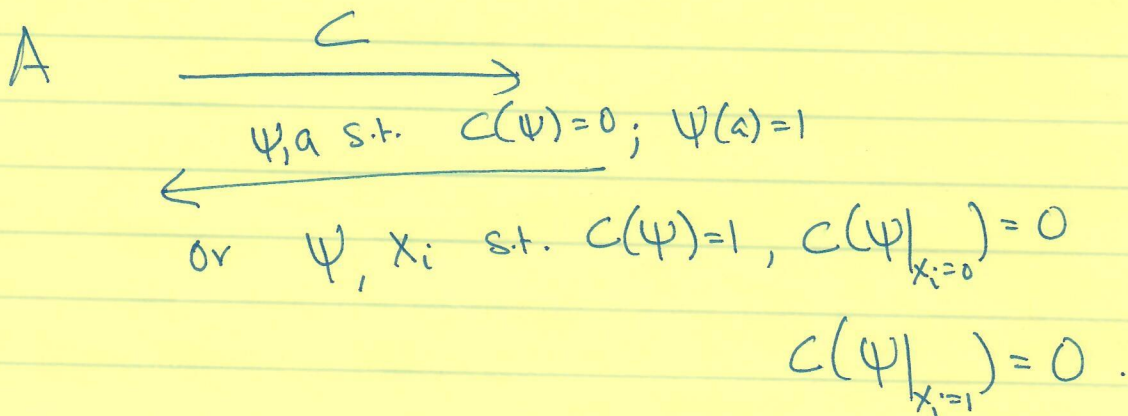 A C
ψ, a s.t. C(ψ)=0; ψ(a)=1
or ψ, xᵢ s.t. C(ψ)=1, C(ψ|ₓᵢ₌₀)=0
C(ψ|ₓᵢ₌₁)=0.